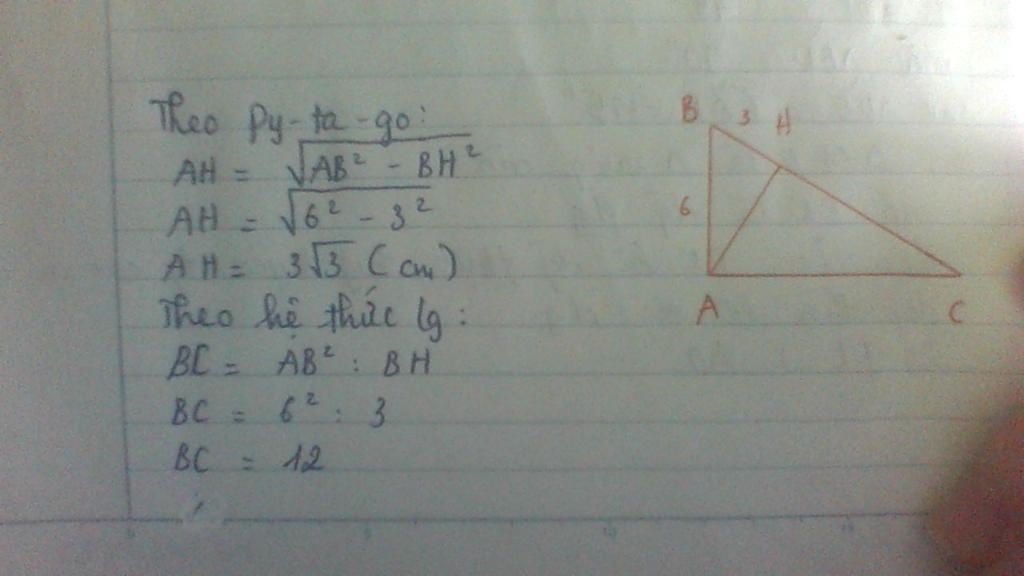 Theo Py-ta-go:
AH = √AB² - BH²
AH = √6² - 3²
AH = 3√3 (cm)
Theo hệ thức lg:
BC = AB² : BH
BC = 6² : 3
BC = 12
B 3 H
6
A C